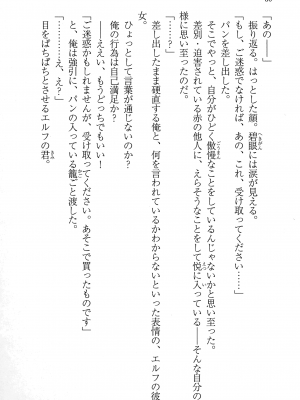 「あの――」
振り返る。はっとした顔。碧眼には涙が見える。
「もし、ご迷惑でなければ、あの、これ、受け取ってください……」
パンを差し出した。
そこでやっと、自分がひどく傲慢なことをしているんじゃないかと思い至った。
差別・迫害されている赤の他人に、えらそうなことをして悦に入っている――そんな自分の
様に思い至ったのだ。
「……？」
差し出したまま硬直する俺と、何を言われているかわからないといった表情の、エルフの彼
女。
ひょっとして言葉が通じないのか？
俺の行為は自己満足か？
――ええい、もうどっちでもいい！
「ご迷惑かもしれませんが、受け取ってください。あそこで買ったものです」
と、俺は強引に、パンの入っている籠ごと渡した。
「…………え、え？」
目をぱちぱちとさせるエルフの君。